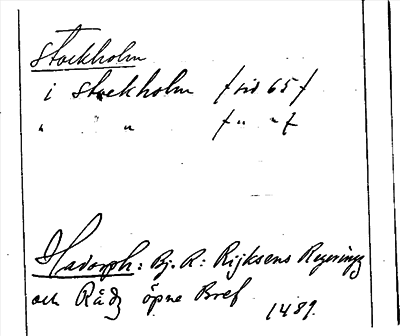 Stockholm
i Stockholm f sid 65 f
" " " f " " f
Hadorph: Bj. R: Rijksens Regeringz
och Rådz öpne Bref
1489.